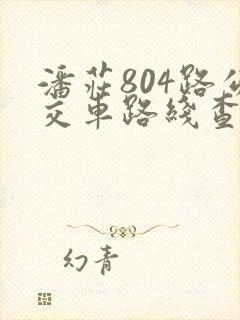 潘莊804路公
交車路綫查
幻青